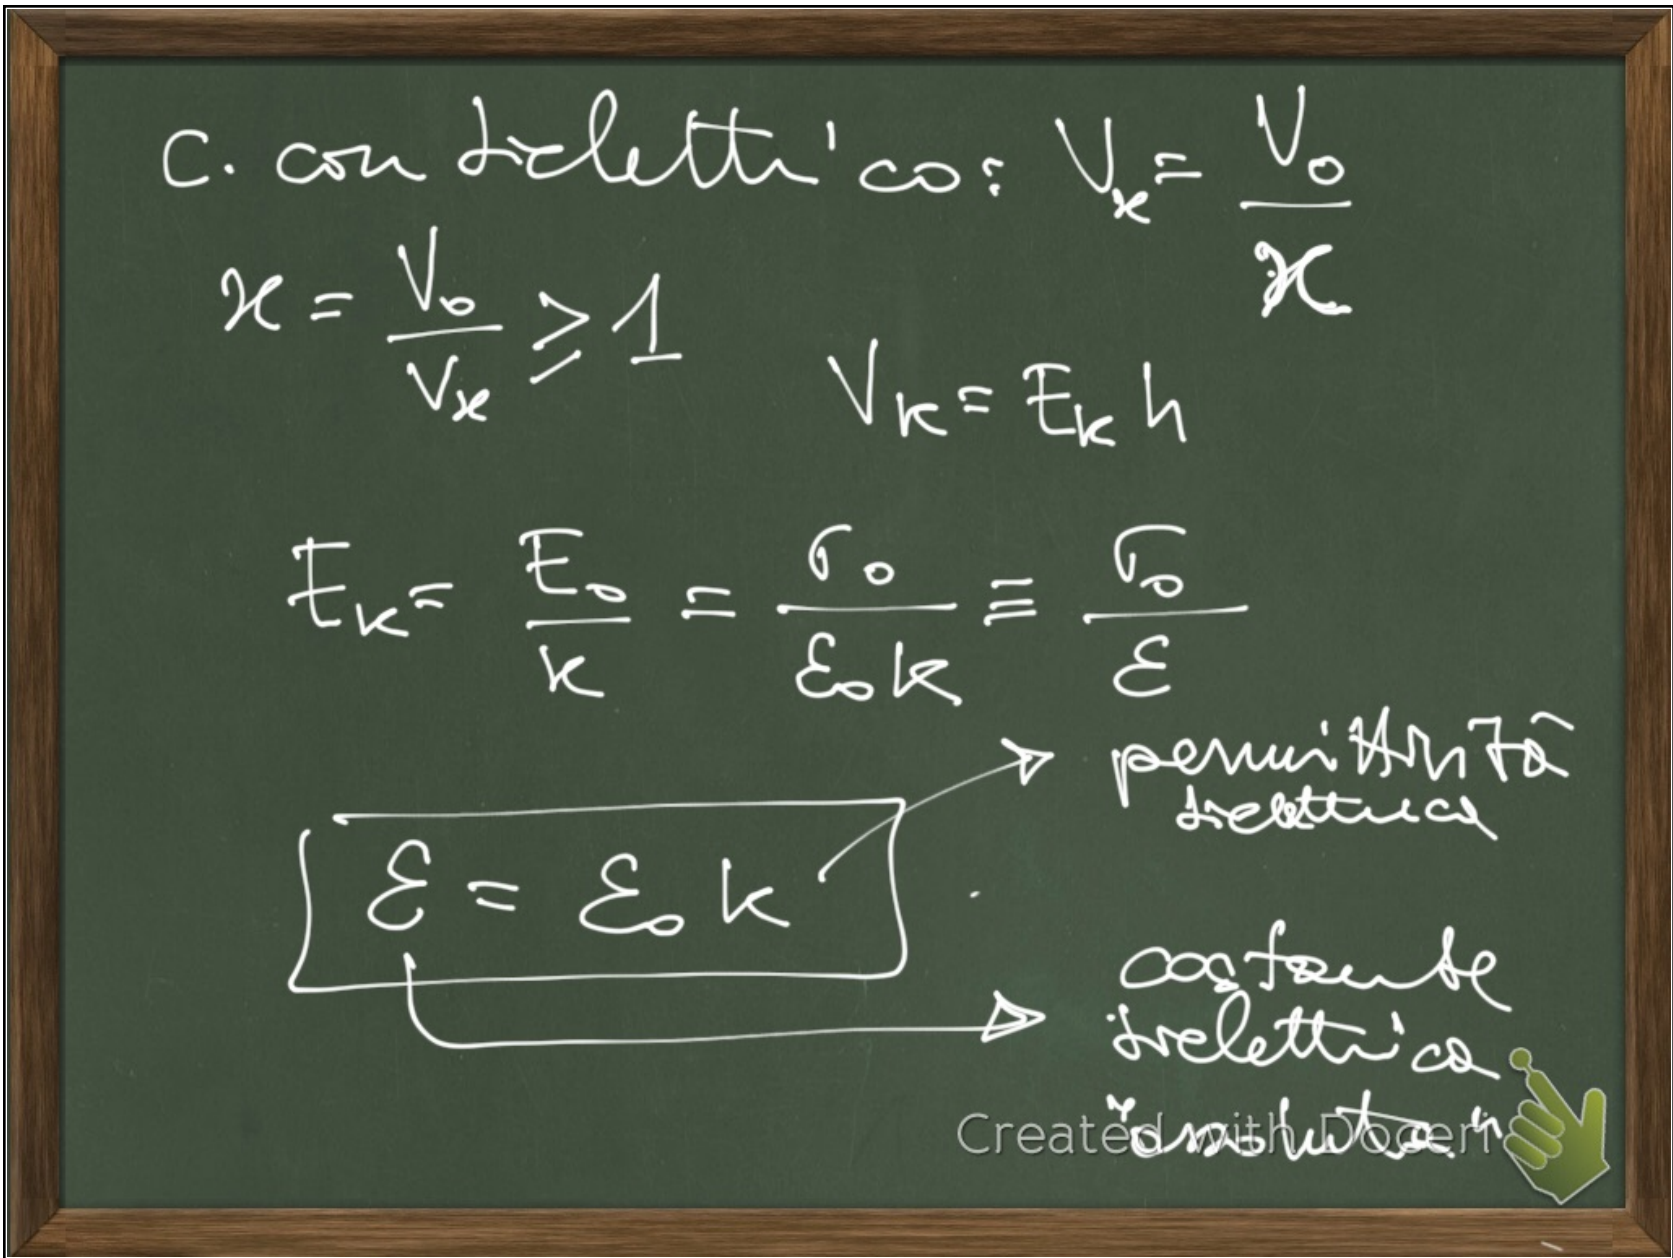 C. con dielettrico: Vϰ = V₀/ϰ
ϰ = V₀/Vϰ ≥ 1
Vₖ = Eₖ h
Eₖ = E₀/k = σ₀/(ε₀ k) ≡ σ₀/ε
permittività
dielettrica
ε = ε₀ k
costante
dielettrica
"assoluta"
Created with Doceri